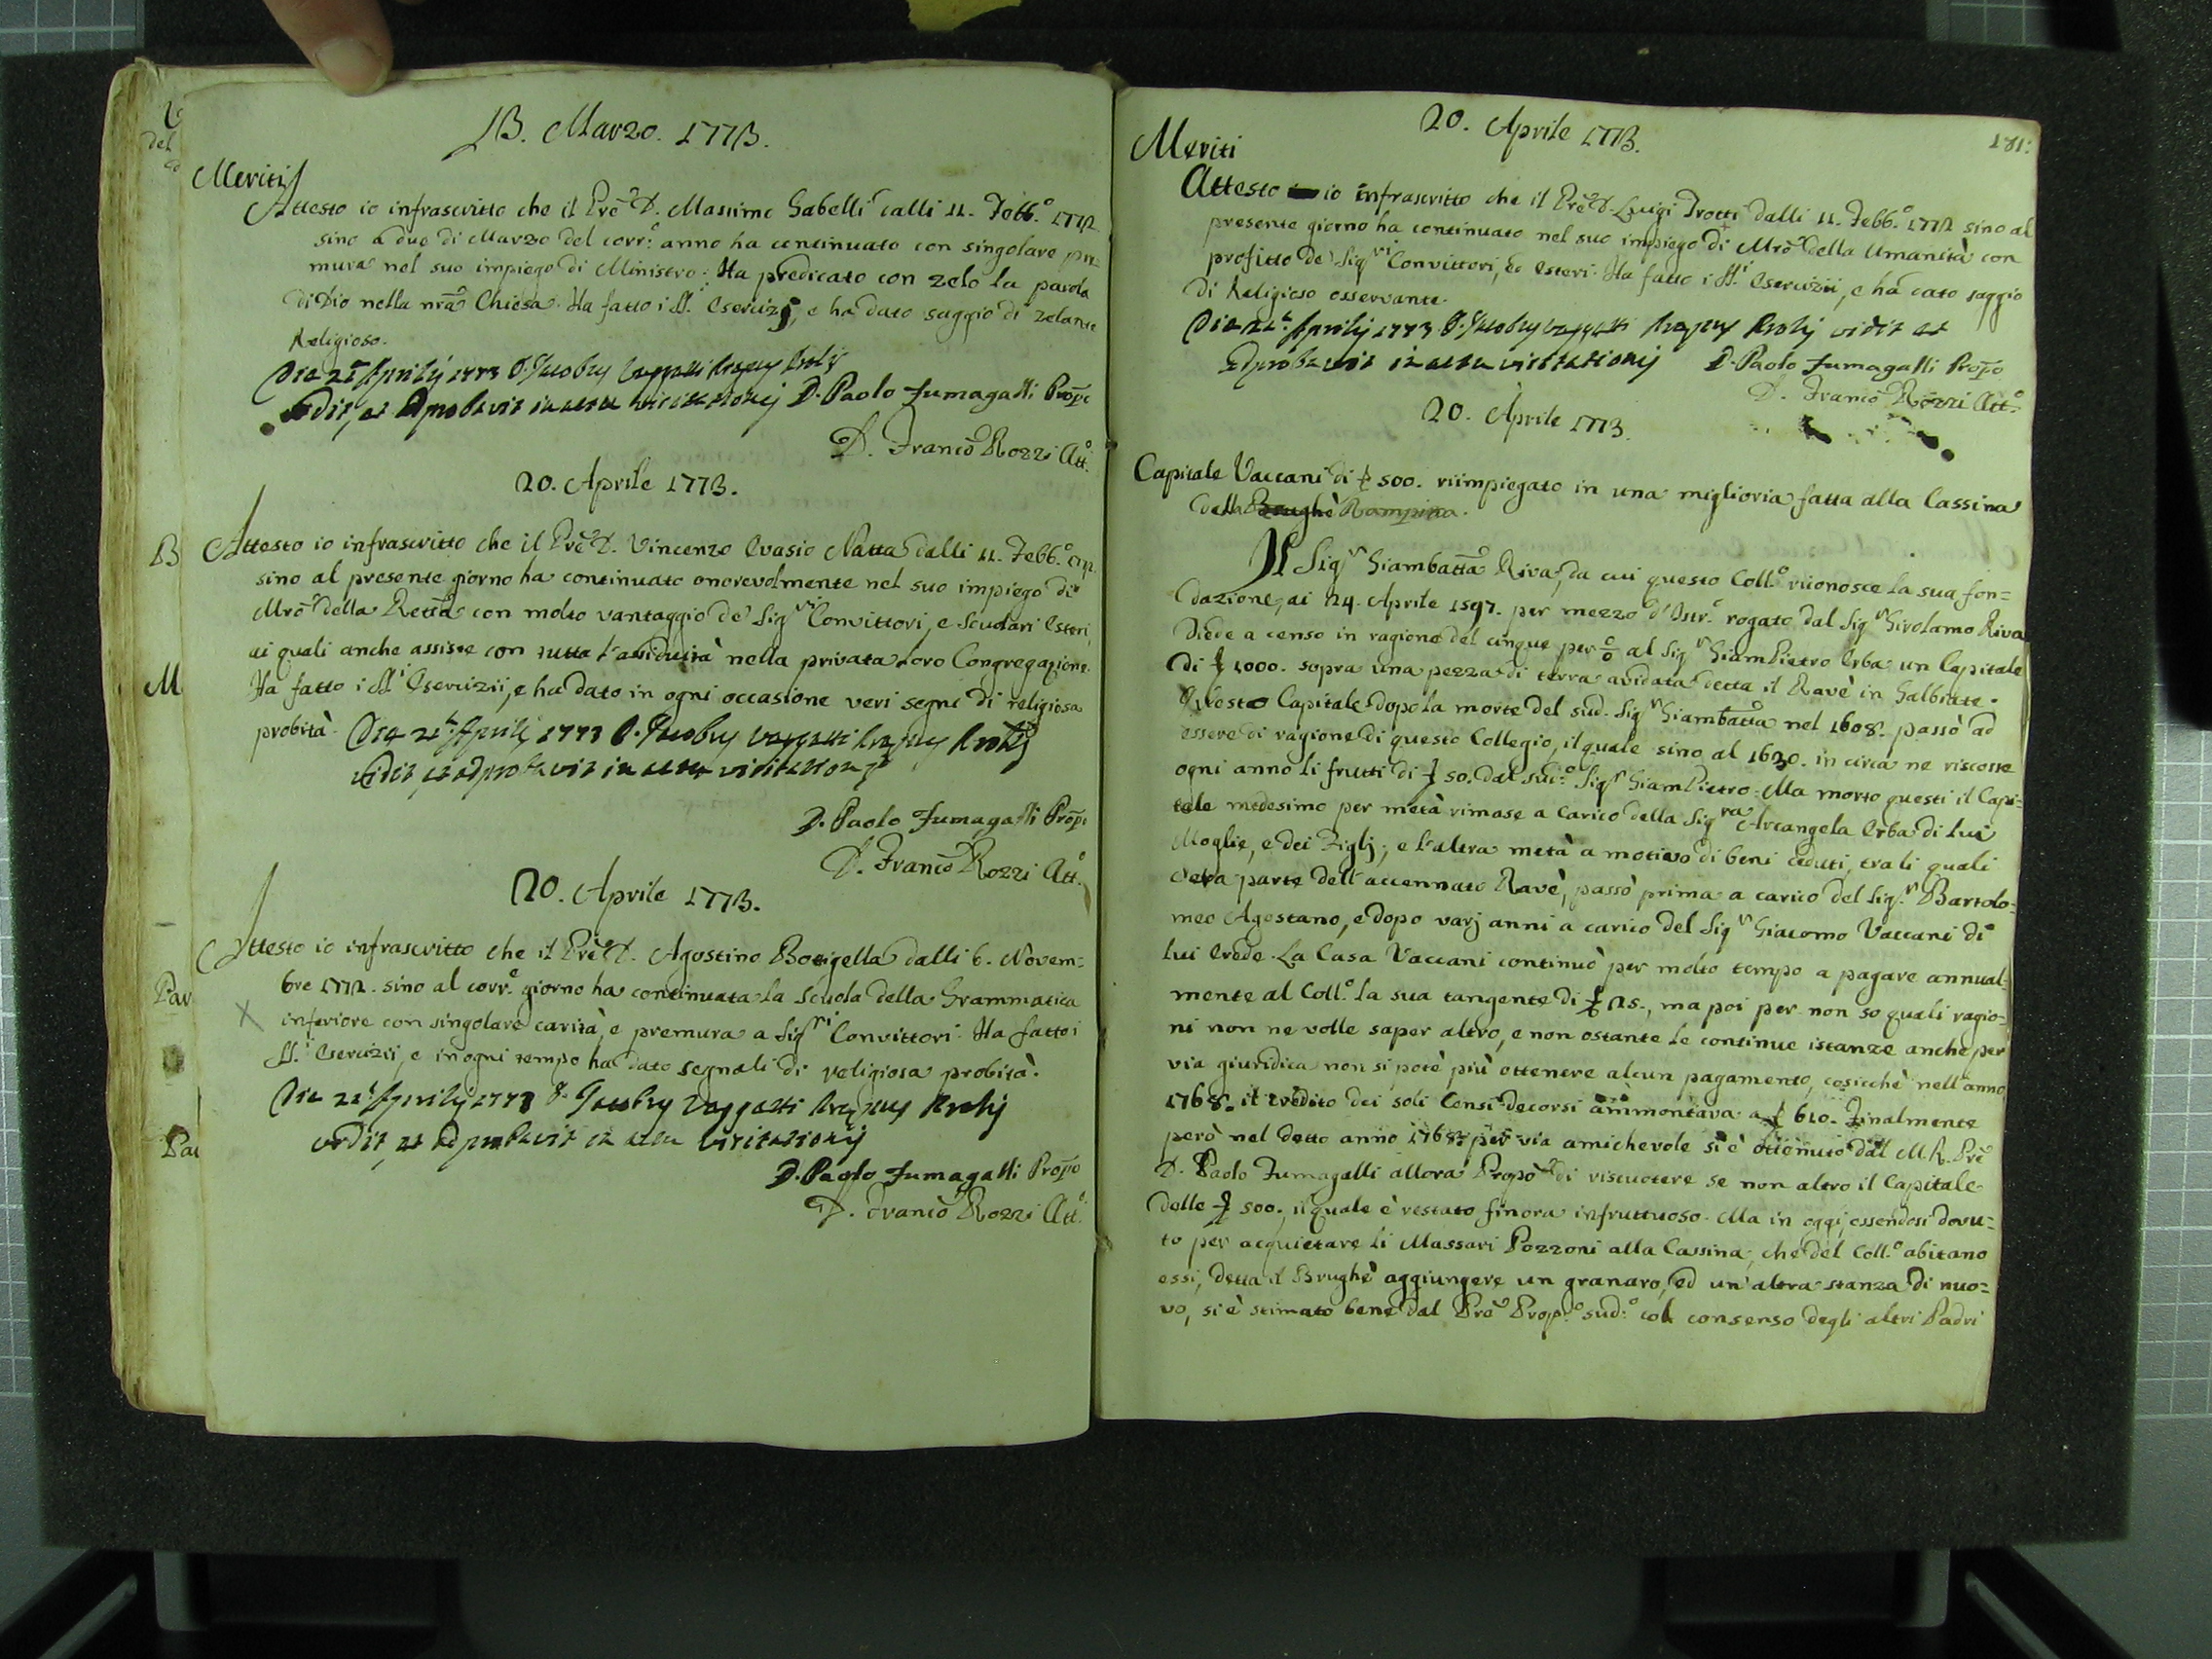 13. Marzo. 1773.
Meriti
Attesto io infrascritto che il Prê D. Massimo Gabelli dalli 11. Febb.º 1772
sino a due di Marzo del corr.e anno ha continuato con singolare pre-
mura nel suo impiego di Ministro: Ha predicato con zelo la parola
di Dio nella nrâ Chiesa. Ha fatto i SS.i Esercizj, e ha dato saggio di zelante
Religioso.
Die 21 Aprilis 1773 D. Jacobus
vidit, et adprobavit in actu visitationis D. Paolo Fumagalli Propo
D. Franco Rozzi Att.º
20. Aprile 1773.
Attesto io infrascritto che il Prê D. Vincenzo Evasio Natta dalli 11. Febb.º 1772.
sino al presente giorno ha continuato onorevolmente nel suo impiego di
Mrô della Retta con molto vantaggio de' Sig.ri Convittori, e Scuolari Esteri,
ai quali anche assiste con tutta l'assiduità nella privata loro Congregazione.
Ha fatto i SS.i Esercizii, e ha dato in ogni occasione veri segni di religiosa
probità. Die 21 Aprilis 1773 D. Jacobus
vidit, et adprobavit in actu visitationis
D. Paolo Fumagalli Propo
D. Franco Rozzi Att.º
20. Aprile 1773.
Attesto io infrascritto che il Prê D. Agostino Bottigella dalli 6. Novem=
bre 1772. sino al corr.e giorno ha continuata la Scuola della Grammatica
inferiore con singolare carità, e premura a Sig.ri Convittori. Ha fatto i
SS.i Esercizii, e in ogni tempo ha dato segnali di religiosa probità.
Die 21 Aprilis 1773 D. Jacobus
vidit, et adprobavit in actu visitationis
D. Paolo Fumagalli Propo
D. Franco Rozzi Att.º
181.
20. Aprile 1773.
Meriti
Attesto io infrascritto che il Prê D. Luigi Trotti dalli 11. Febb.º 1772 sino al
presente giorno ha continuato nel suo impiego di Mrô della Umanità con
profitto de' Sig.ri Convittori, ed Esteri. Ha fatto i SS.i Esercizii, e ha dato saggio
di Religioso osservante.
Die 21 Aprilis 1773 D. Jacobus vidit et
adprobavit in actu visitationis D. Paolo Fumagalli Propo
D. Franco Rozzi Att.º
20. Aprile 1773.
Capitale Vaccani di £ 500. riimpiegato in una miglioria fatta alla Cassina
della Brughè Rampina.
Il Sig.r Giambattâ Riva, da cui questo Coll.º riconosce la sua fon=
dazione, ai 24. Aprile 1597. per mezzo d'Istr.º rogato dal Sig.r Girolamo Riva
diede a censo in ragione del cinque per % al Sig.r GiamPietro Erba un Capitale
di £ 1000. sopra una pezza di terra avidata detta il Ravè in Galbiate.
Questo Capitale dopo la morte del sud. Sig.r Giambattâ nel 1608. passò ad
essere di ragione di questo Collegio, il quale sino al 1630. in circa ne riscosse
ogni anno li frutti di £ 50. dal sud.º Sig.r GiamPietro: Ma morto questi il Capi=
tale medesimo per metà rimase a carico della Sig.ra Arcangela Erba di lui
Moglie, e dei Figlj; e l'altra metà a motivo di beni ceduti, tra li quali
v'era parte dell'accennato Ravè, passò prima a carico del Sig.r Bartolo=
meo Agostano, e dopo varj anni a carico del Sig.r Giacomo Vaccani di
lui Erede. La Casa Vaccani continuò per molto tempo a pagare annual=
mente al Coll.º la sua tangente di £ 25., ma poi per non so quali ragio=
ni non ne volle saper altro, e non ostante le continue istanze anche per
via giuridica non si potè più ottenere alcun pagamento, cosicchè nell'anno
1768. il credito dei soli Censi decorsi ammontava a £ 610. Finalmente
però nel detto anno 1768. per via amichevole si è ottenuto dal M. R. Prê
D. Paolo Fumagalli allora Propô di riscuotere se non altro il Capitale
delle £ 500., il quale è restato finora infruttuoso. Ma in oggi, essendosi dovu=
to per acquietare li Massari Pozzoni alla Cassina, che del Coll.º abitano
essi, detta il Brughè aggiungere un granaro, ed un'altra stanza di nuo=
vo, si è stimato bene dal Prê Prop.º sud.º col consenso degli altri Padri